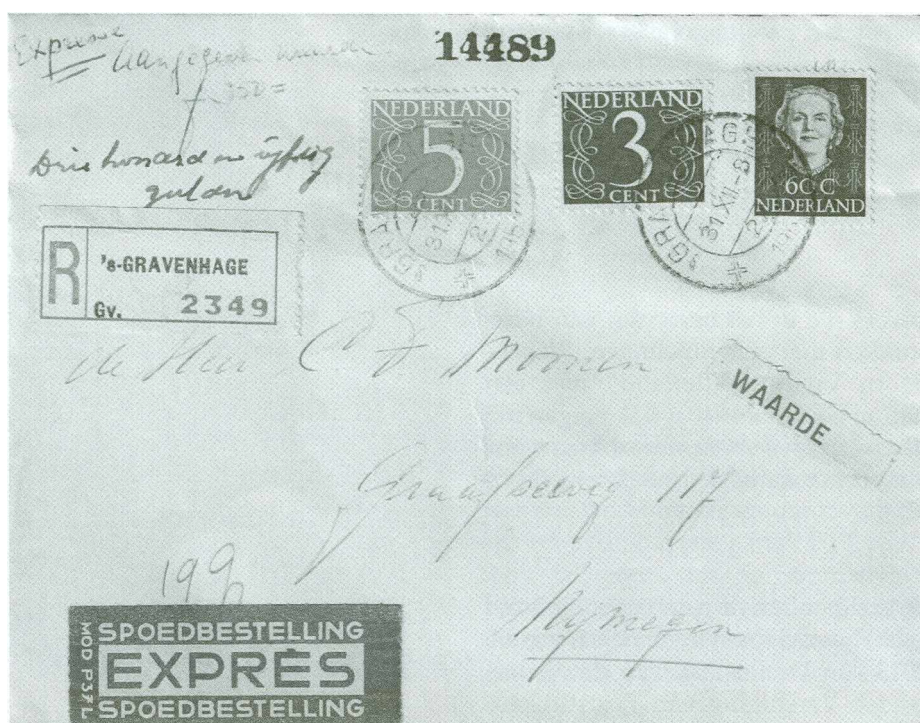 Expresse
Aangegeven waarde
14489
f 350=
Driehonderd en vijftig
gulden
NEDERLAND
5
CENT
NEDERLAND
3
CENT
60 C
NEDERLAND
31.XII
R
's-GRAVENHAGE
Gv. 2349
de Heer C F Moonen
WAARDE
Graafseweg 117
Nymegen
MOD P37L
SPOEDBESTELLING
EXPRÈS
SPOEDBESTELLING